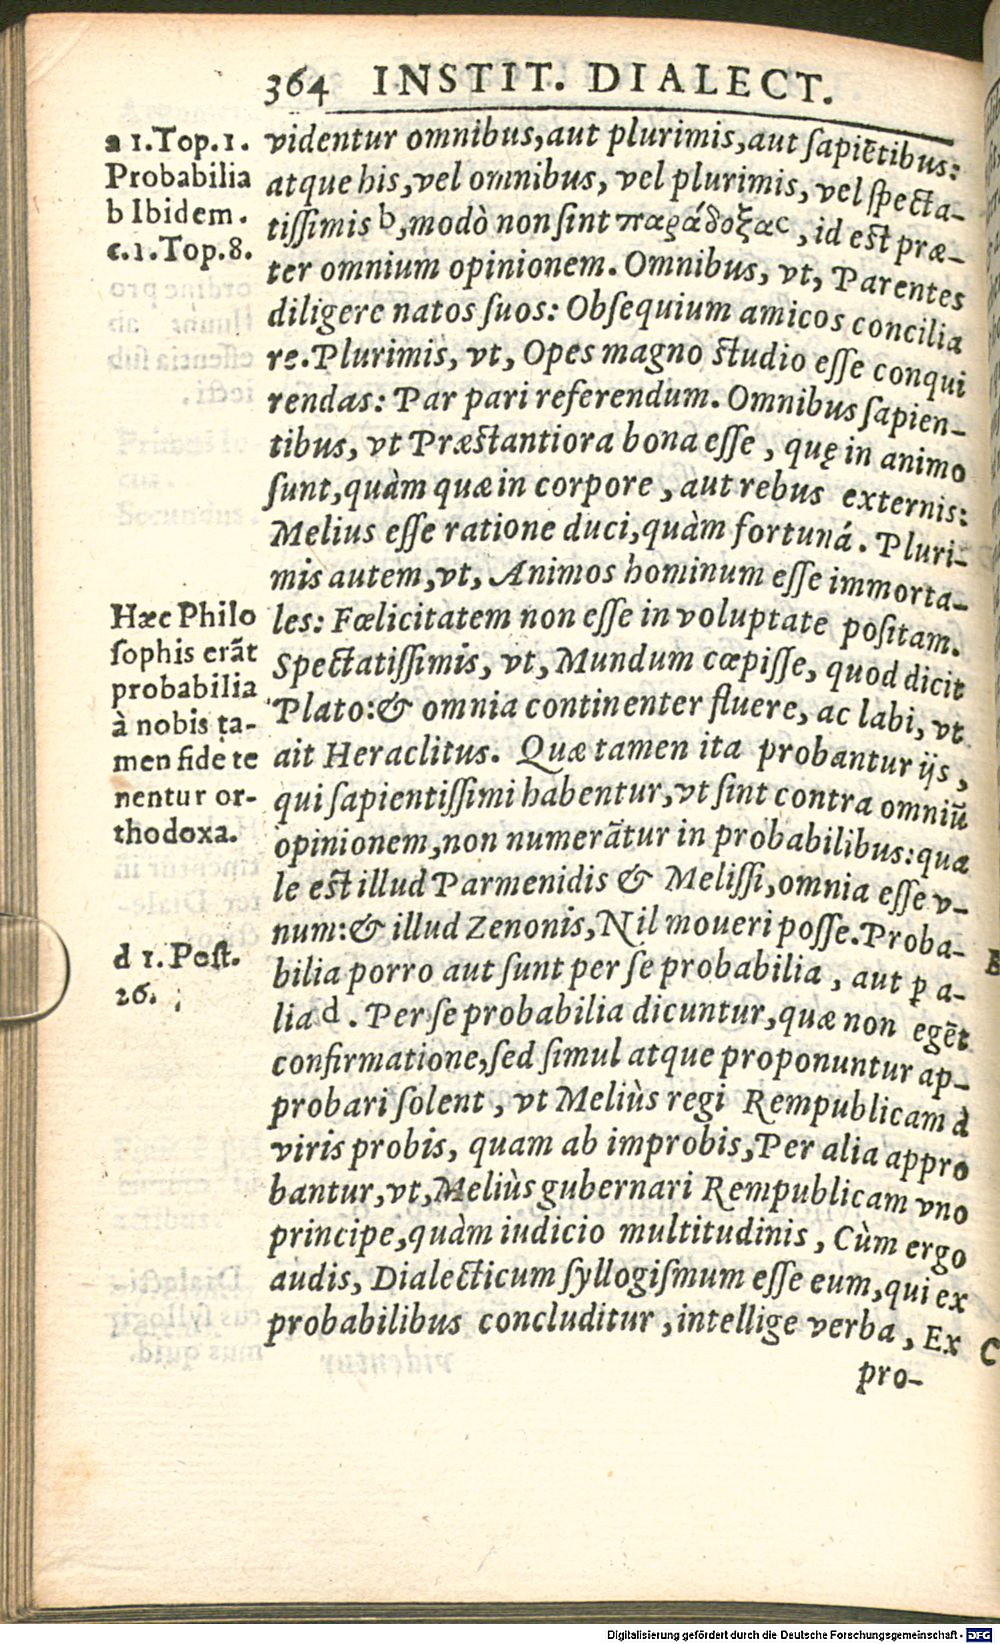 364 INSTIT. DIALECT.
a 1. Top. 1.
Probabilia
b Ibidem.
c. 1. Top. 8.
videntur omnibus, aut plurimis, aut ſapiẽtibus:
atque his, vel omnibus, vel plurimis, vel ſpecta-
tiſſimis b, modò non ſint παράδοξα c, id est præ-
ter omnium opinionem. Omnibus, vt, Parentes
diligere natos ſuos: Obſequium amicos concilia
re. Plurimis, vt, Opes magno studio eſſe conqui
rendas: Par pari referendum. Omnibus ſapien-
tibus, vt Præstantiora bona eſſe, quę in animo
ſunt, quàm quæ in corpore, aut rebus externis:
Melius eſſe ratione duci, quàm fortuná. Pluri-
mis autem, vt, Animos hominum eſſe immorta-
les: Fœlicitatem non eſſe in voluptate poſitam.
Spectatiſſimis, vt, Mundum cœpiſſe, quod dicit
Plato: & omnia continenter fluere, ac labi, vt
ait Heraclitus. Quæ tamen ita probantur ijs,
qui ſapientiſſimi habentur, vt ſint contra omniũ
opinionem, non numerãtur in probabilibus: qua
le est illud Parmenidis & Meliſſi, omnia eſſe v-
num: & illud Zenonis, Nil moueri poſſe. Proba-
bilia porro aut ſunt per ſe probabilia, aut ꝑ a-
lia d. Per ſe probabilia dicuntur, quæ non egẽt
confirmatione, ſed ſimul atque proponuntur ap-
probari ſolent, vt Meliùs regi Rempublicam à
viris probis, quam ab improbis, Per alia appro
bantur, vt, Meliùs gubernari Rempublicam vno
principe, quàm iudicio multitudinis, Cùm ergo
audis, Dialecticum ſyllogiſmum eſſe eum, qui ex
probabilibus concluditur, intellige verba, Ex
pro-
Hæc Philo
ſophis erãt
probabilia
à nobis ta-
men fide te
nentur or-
thodoxa.
d 1. Poſt.
26.
Digitalisierung gefördert durch die Deutsche Forschungsgemeinschaft - DFG